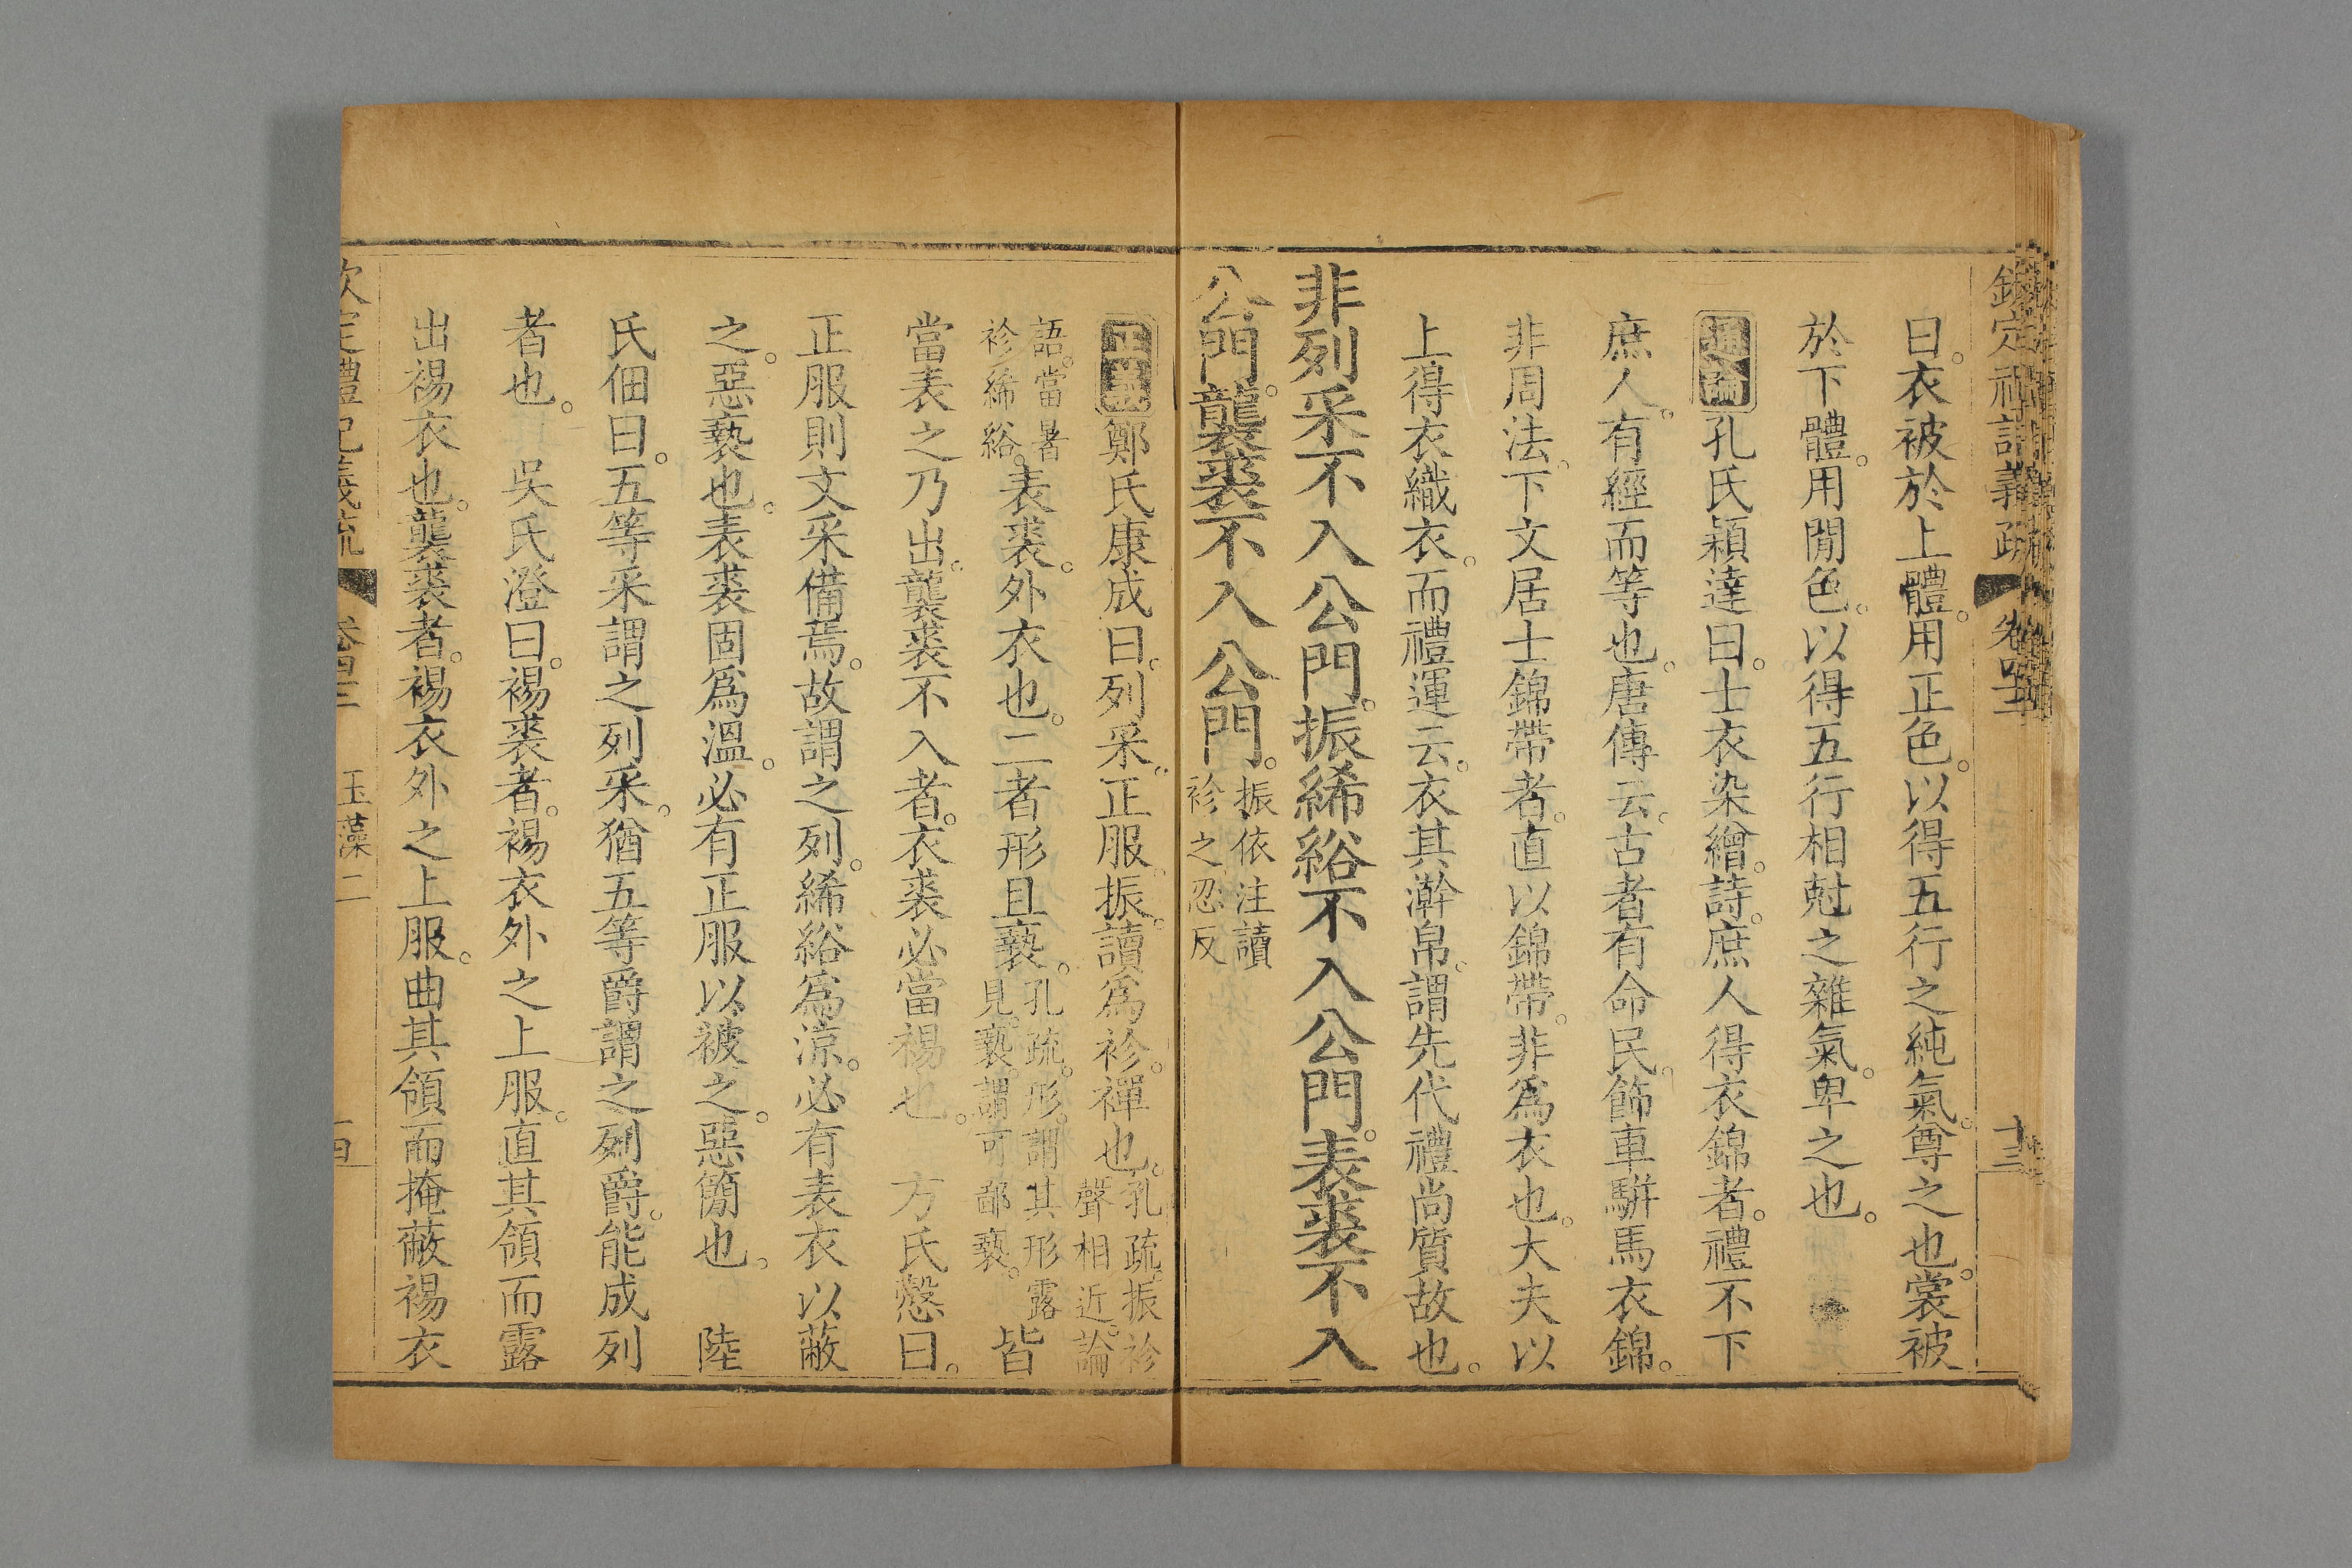 欽定禮記義疏 卷四十三 十三
曰。衣被於上體。用正色。以得五行之純氣。尊之也。裳被
於下體。用閒色。以得五行相尅之雜氣。卑之也。
通論孔氏穎達曰。士衣染繒。詩。庶人得衣錦者。禮不下
庶人。有經而等也。唐傳云。古者有命民。飾車駢馬衣錦。
非周法。下文居士錦帶者。直以錦帶。非爲衣也。大夫以
上得衣織衣。而禮運云。衣其澣帛。謂先代禮尚質故也。
非列采不入公門。振絺綌不入公門。表裘不入
公門。襲裘不入公門。振依注讀袗之忍反
正義鄭氏康成曰。列采。正服。振。讀爲袗。襌也。孔疏。振袗聲相近。論
語。當暑袗絺綌。表裘。外衣也。二者形且褻。孔疏。形。謂其形露見。褻。謂可鄙褻。皆
當表之乃出。襲裘不入者。衣裘必當裼也。 方氏慤曰。
正服則文采備焉。故謂之列。絺綌爲涼。必有表衣以蔽
之。惡褻也。表裘固爲溫。必有正服以被之。惡簡也。 陸
氏佃曰。五等采謂之列采。猶五等爵謂之列爵。能成列
者也。 吳氏澄曰。裼裘者。裼衣外之上服。直其領而露
出裼衣也。襲裘者。裼衣外之上服。曲其領而掩蔽裼衣
欽定禮記義疏 卷四十三 玉藻二 十四